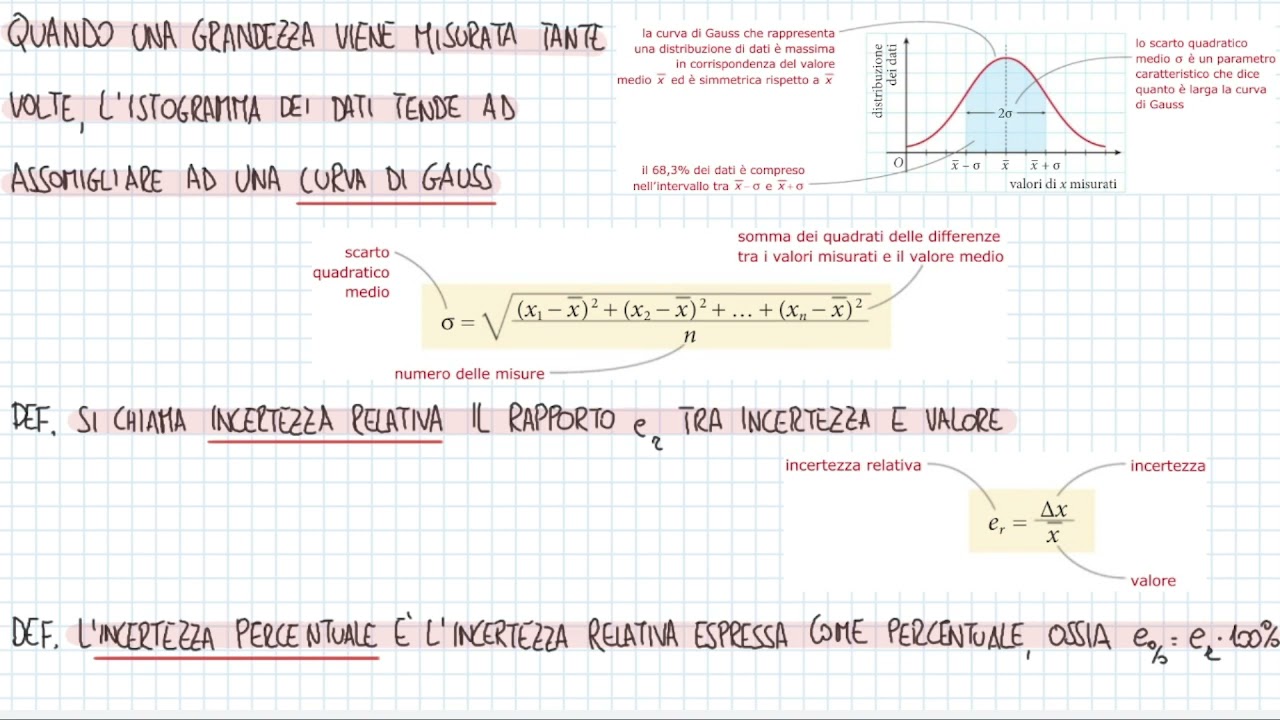 QUANDO UNA GRANDEZZA VIENE MISURATA TANTE
VOLTE, L'ISTOGRAMMA DEI DATI TENDE AD
ASSOMIGLIARE AD UNA CURVA DI GAUSS
la curva di Gauss che rappresenta
una distribuzione di dati è massima
in corrispondenza del valore
medio x̅ ed è simmetrica rispetto a x̅
il 68,3% dei dati è compreso
nell'intervallo tra x̅ – σ e x̅ + σ
distribuzione
dei dati
2σ
O
x̅ – σ x̅ x̅ + σ
valori di x misurati
lo scarto quadratico
medio σ è un parametro
caratteristico che dice
quanto è larga la curva
di Gauss
scarto
quadratico
medio
somma dei quadrati delle differenze
tra i valori misurati e il valore medio
σ = √((x₁ – x̅)² + (x₂ – x̅)² + ... + (xₙ – x̅)² / n)
numero delle misure
DEF. SI CHIAMA INCERTEZZA RELATIVA IL RAPPORTO e_r TRA INCERTEZZA E VALORE
incertezza relativa
incertezza
e_r = Δx / x̅
valore
DEF. L'INCERTEZZA PERCENTUALE È L'INCERTEZZA RELATIVA ESPRESSA COME PERCENTUALE, OSSIA e_% = e_r · 100%